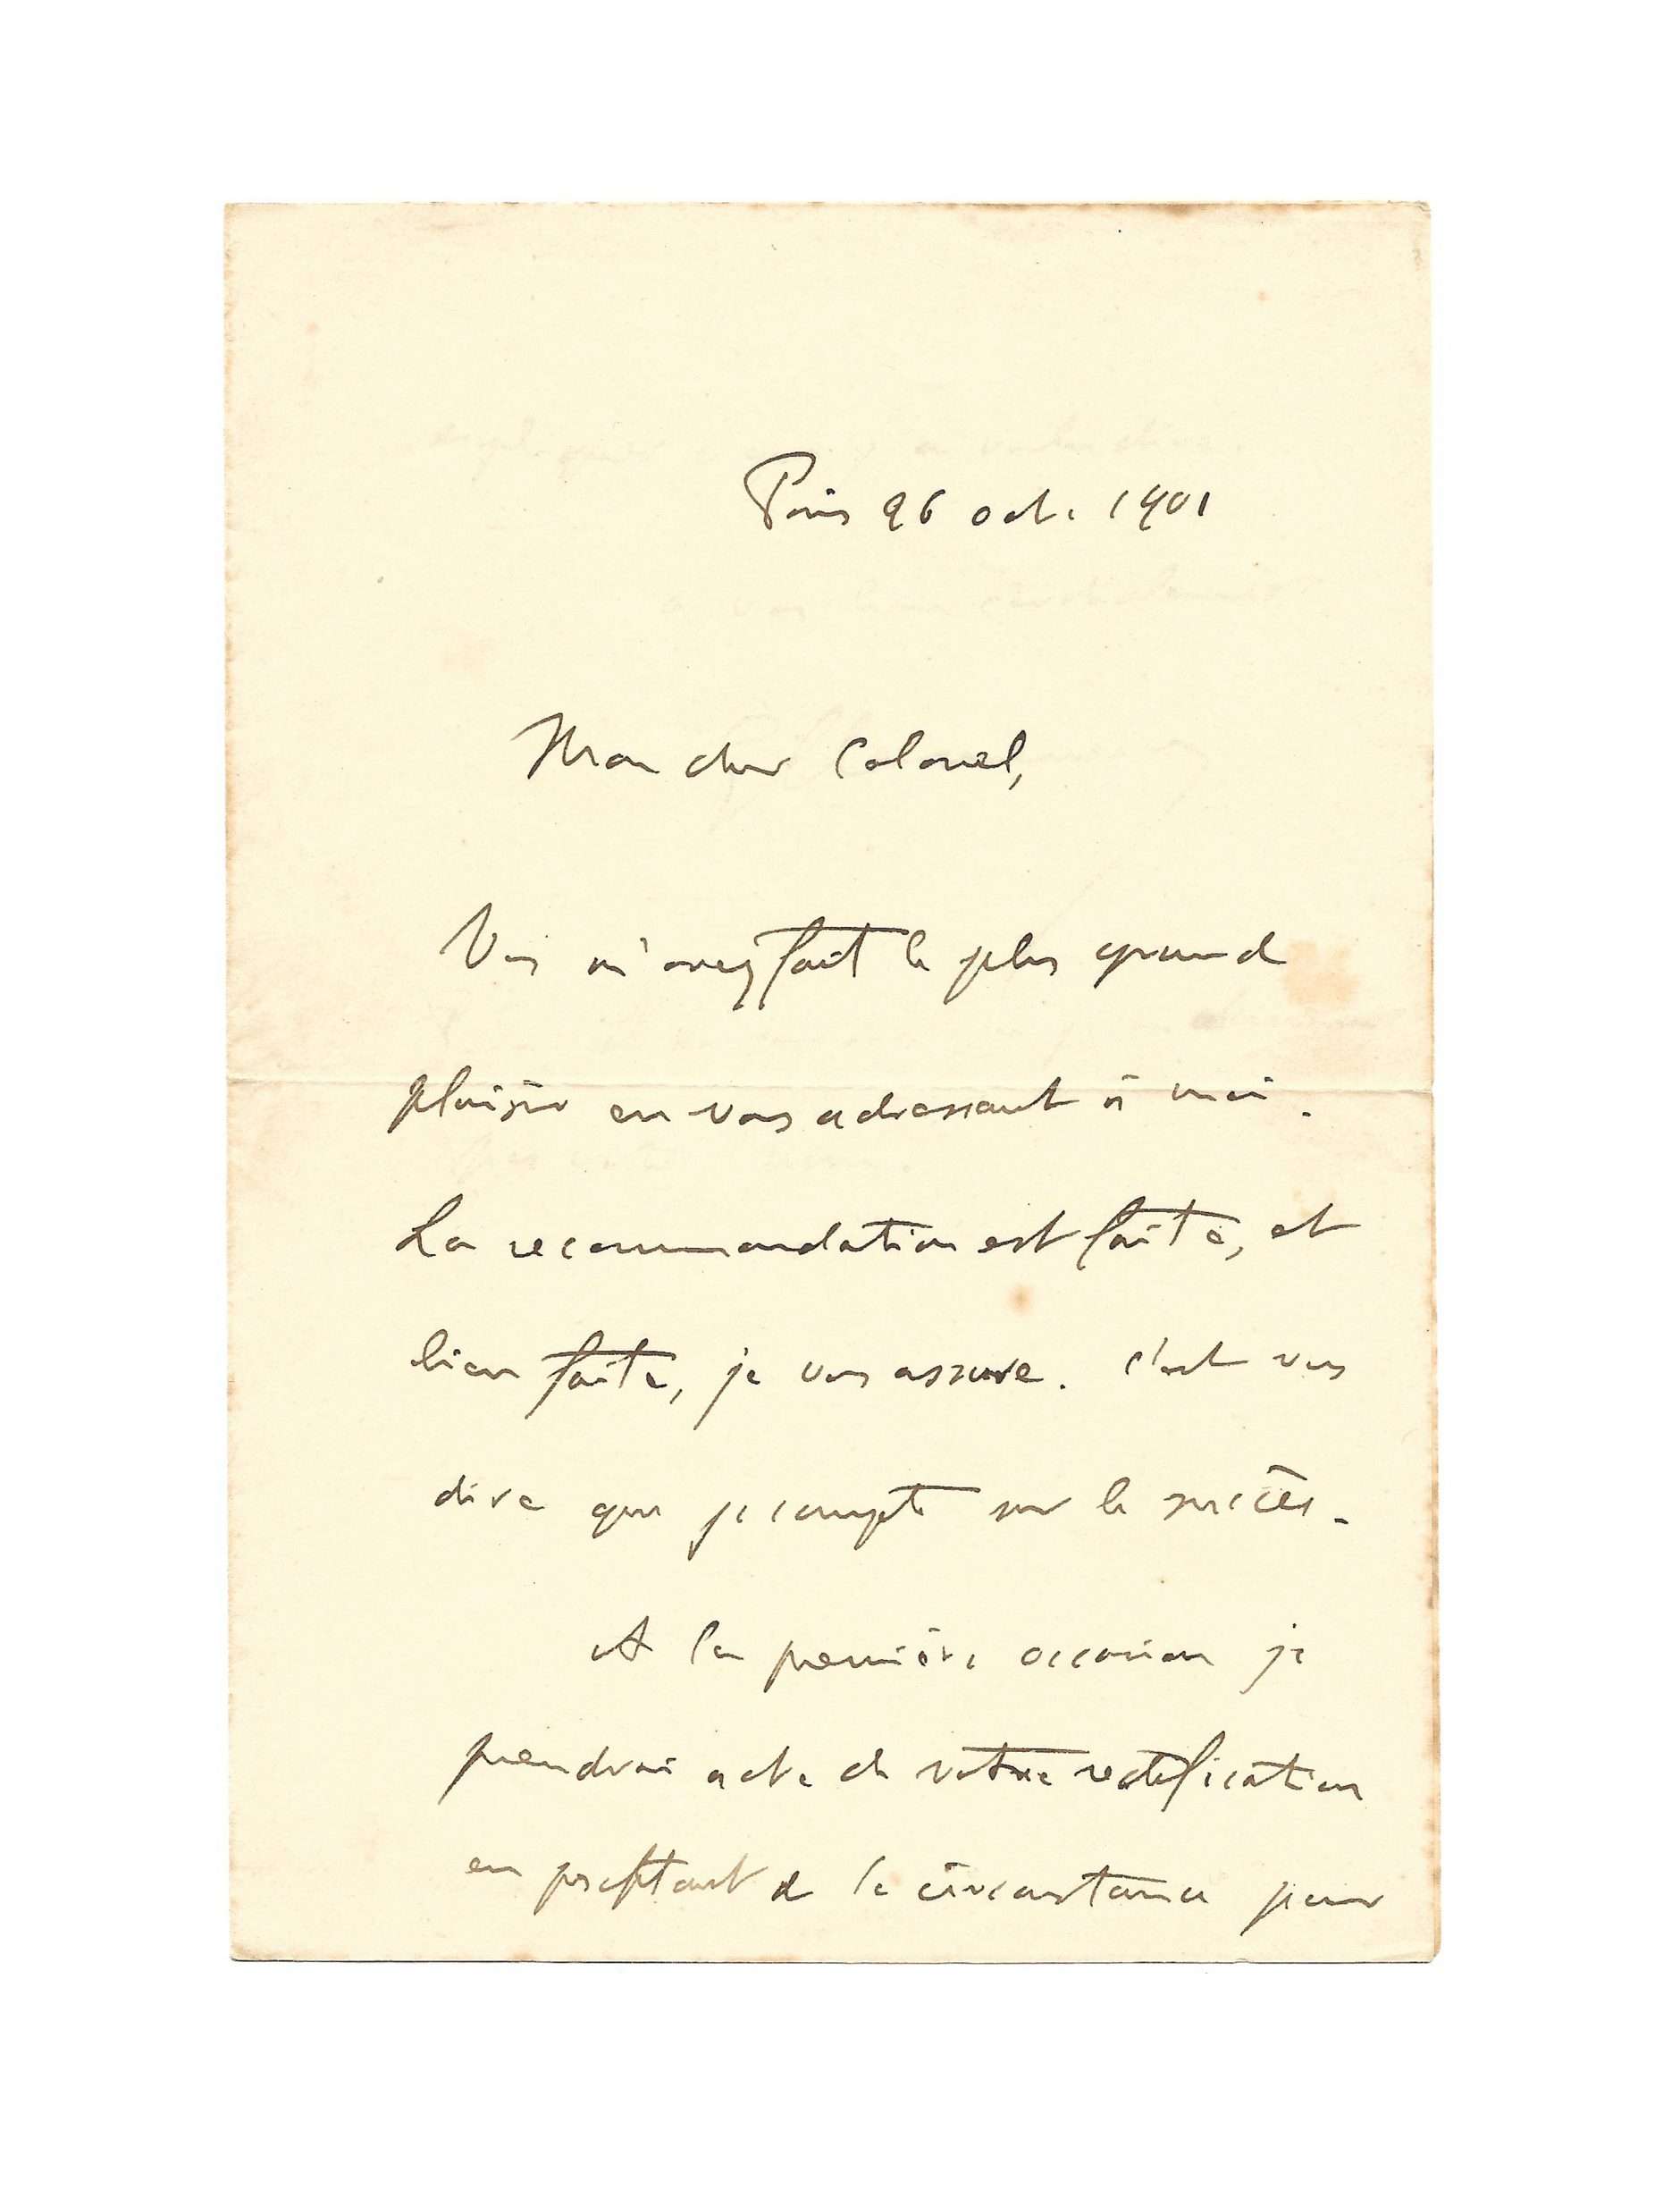 Paris 26 oct. 1901
Mon cher Colonel,
Vous m'avez fait le plus grand
plaisir en vous adressant à moi.
La recommandation est faite, et
bien faite, je vous assure. C'est vous
dire que je compte sur le succès.
A la première occasion je
prendrai acte de votre rectification
en profitant de la circonstance pour